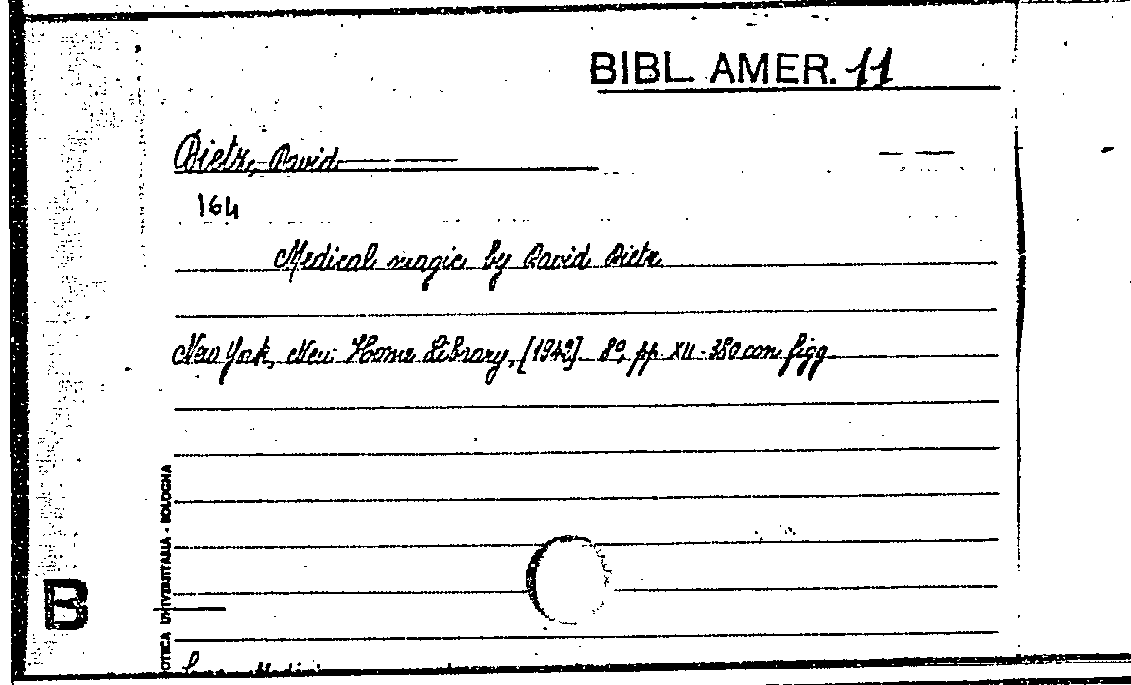 BIBL. AMER. 11
Dietz, David
164
Medical magic by David Dietz
New York, New Home Library, [1942]. 8º, pp. XII-380 con figg.
OTECA UNIVERSITARIA - BOLOGNA
B